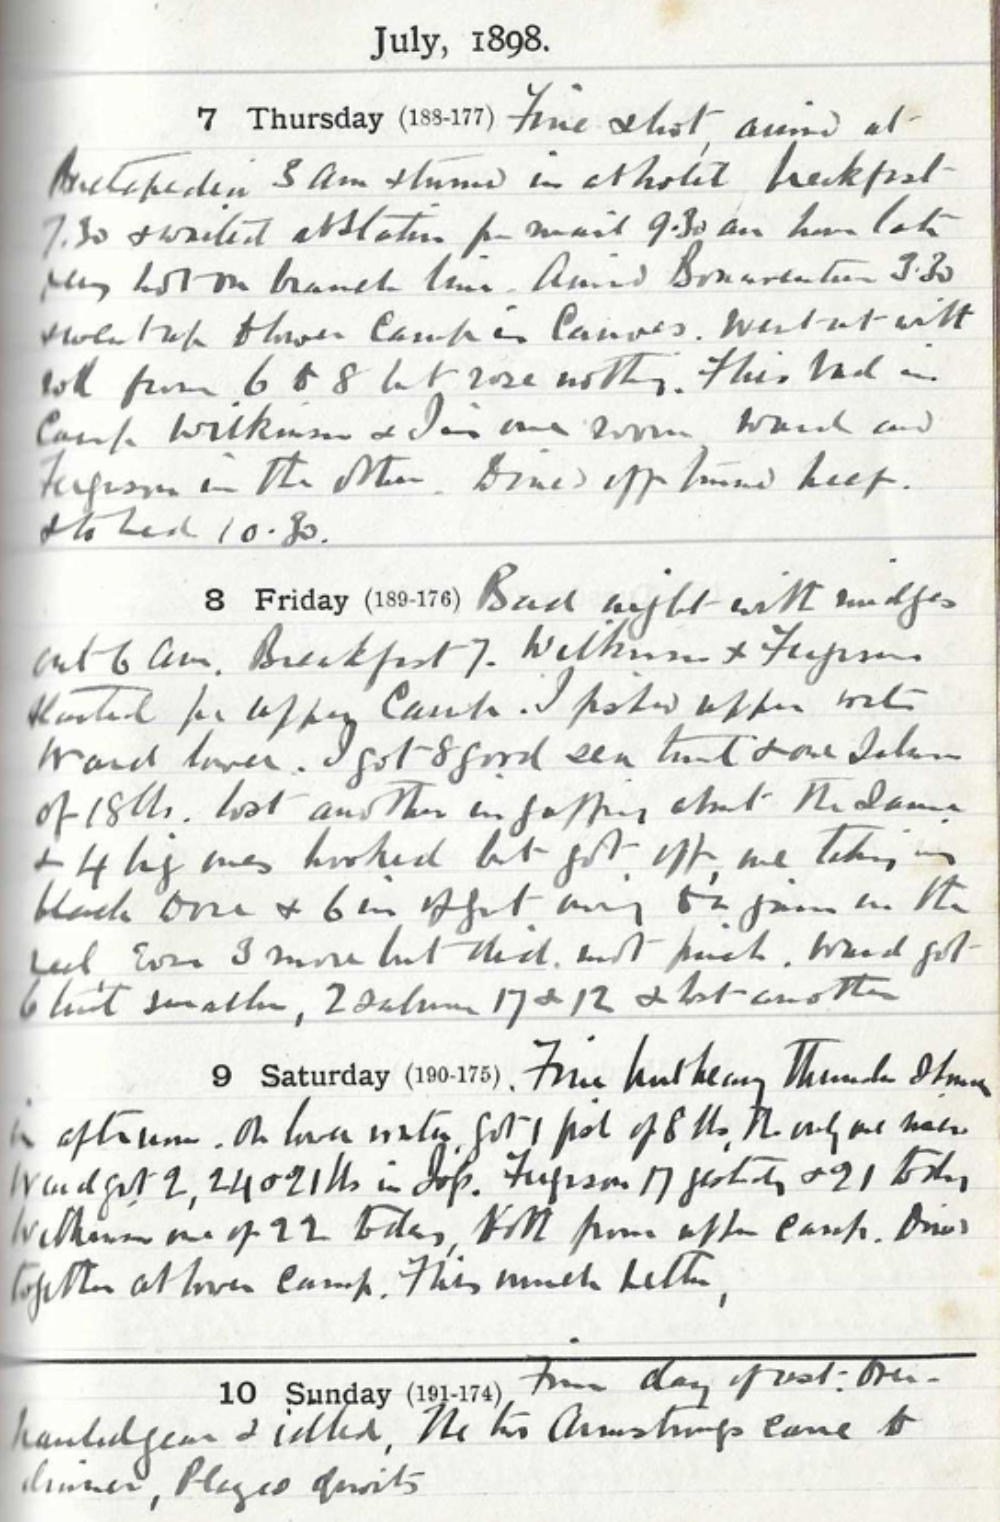 July, 1898.
7 Thursday (188-177) Fine & hot, arrived at
Metapedia 3 am & turned in at hotel breakfast
7.30 & waited at Station for mail 9.30 an hour late
very hot on branch line. Arrived Bonaventure 3.30
& went up to lower Camp in Canoes. Went out with
rod from 6 to 8 but rose nothing. Flies bad in
Camp Wilkinson & I in one room Ward and
Ferguson in the other. Dined off tinned beef.
& to bed 10.30.
8 Friday (189-176) Bad night with midges
out 6 am. Breakfast 7. Wilkinson & Ferguson
started for upper Camp. I fished upper water
Ward lower. I got 8 good sea trout & one Salmon
of 18 lbs. lost another in gaffing about the same
& 4 big ones hooked but got off, one taking my
black Dose & 6 in of gut owing to a jam in the
reel. Rose 3 more but did not prick. Ward got
6 trout smaller, 2 salmon 17 & 12 & lost another
9 Saturday (190-175). Fine but heavy thunder storm
in afternoon. On lower water, got 1 fish of 8 lbs, the only one
Ward got 2, 24 & 21 lbs in Ferguson 17 yesterday & 21 today
Wilkinson one of 22 today, both from upper camp. Dined
together at lower camp. Flies much better,
10 Sunday (191-174) Fine day of rest. Over-
hauled gear & idled, The two Armstrongs came to
dinner, Played quoits